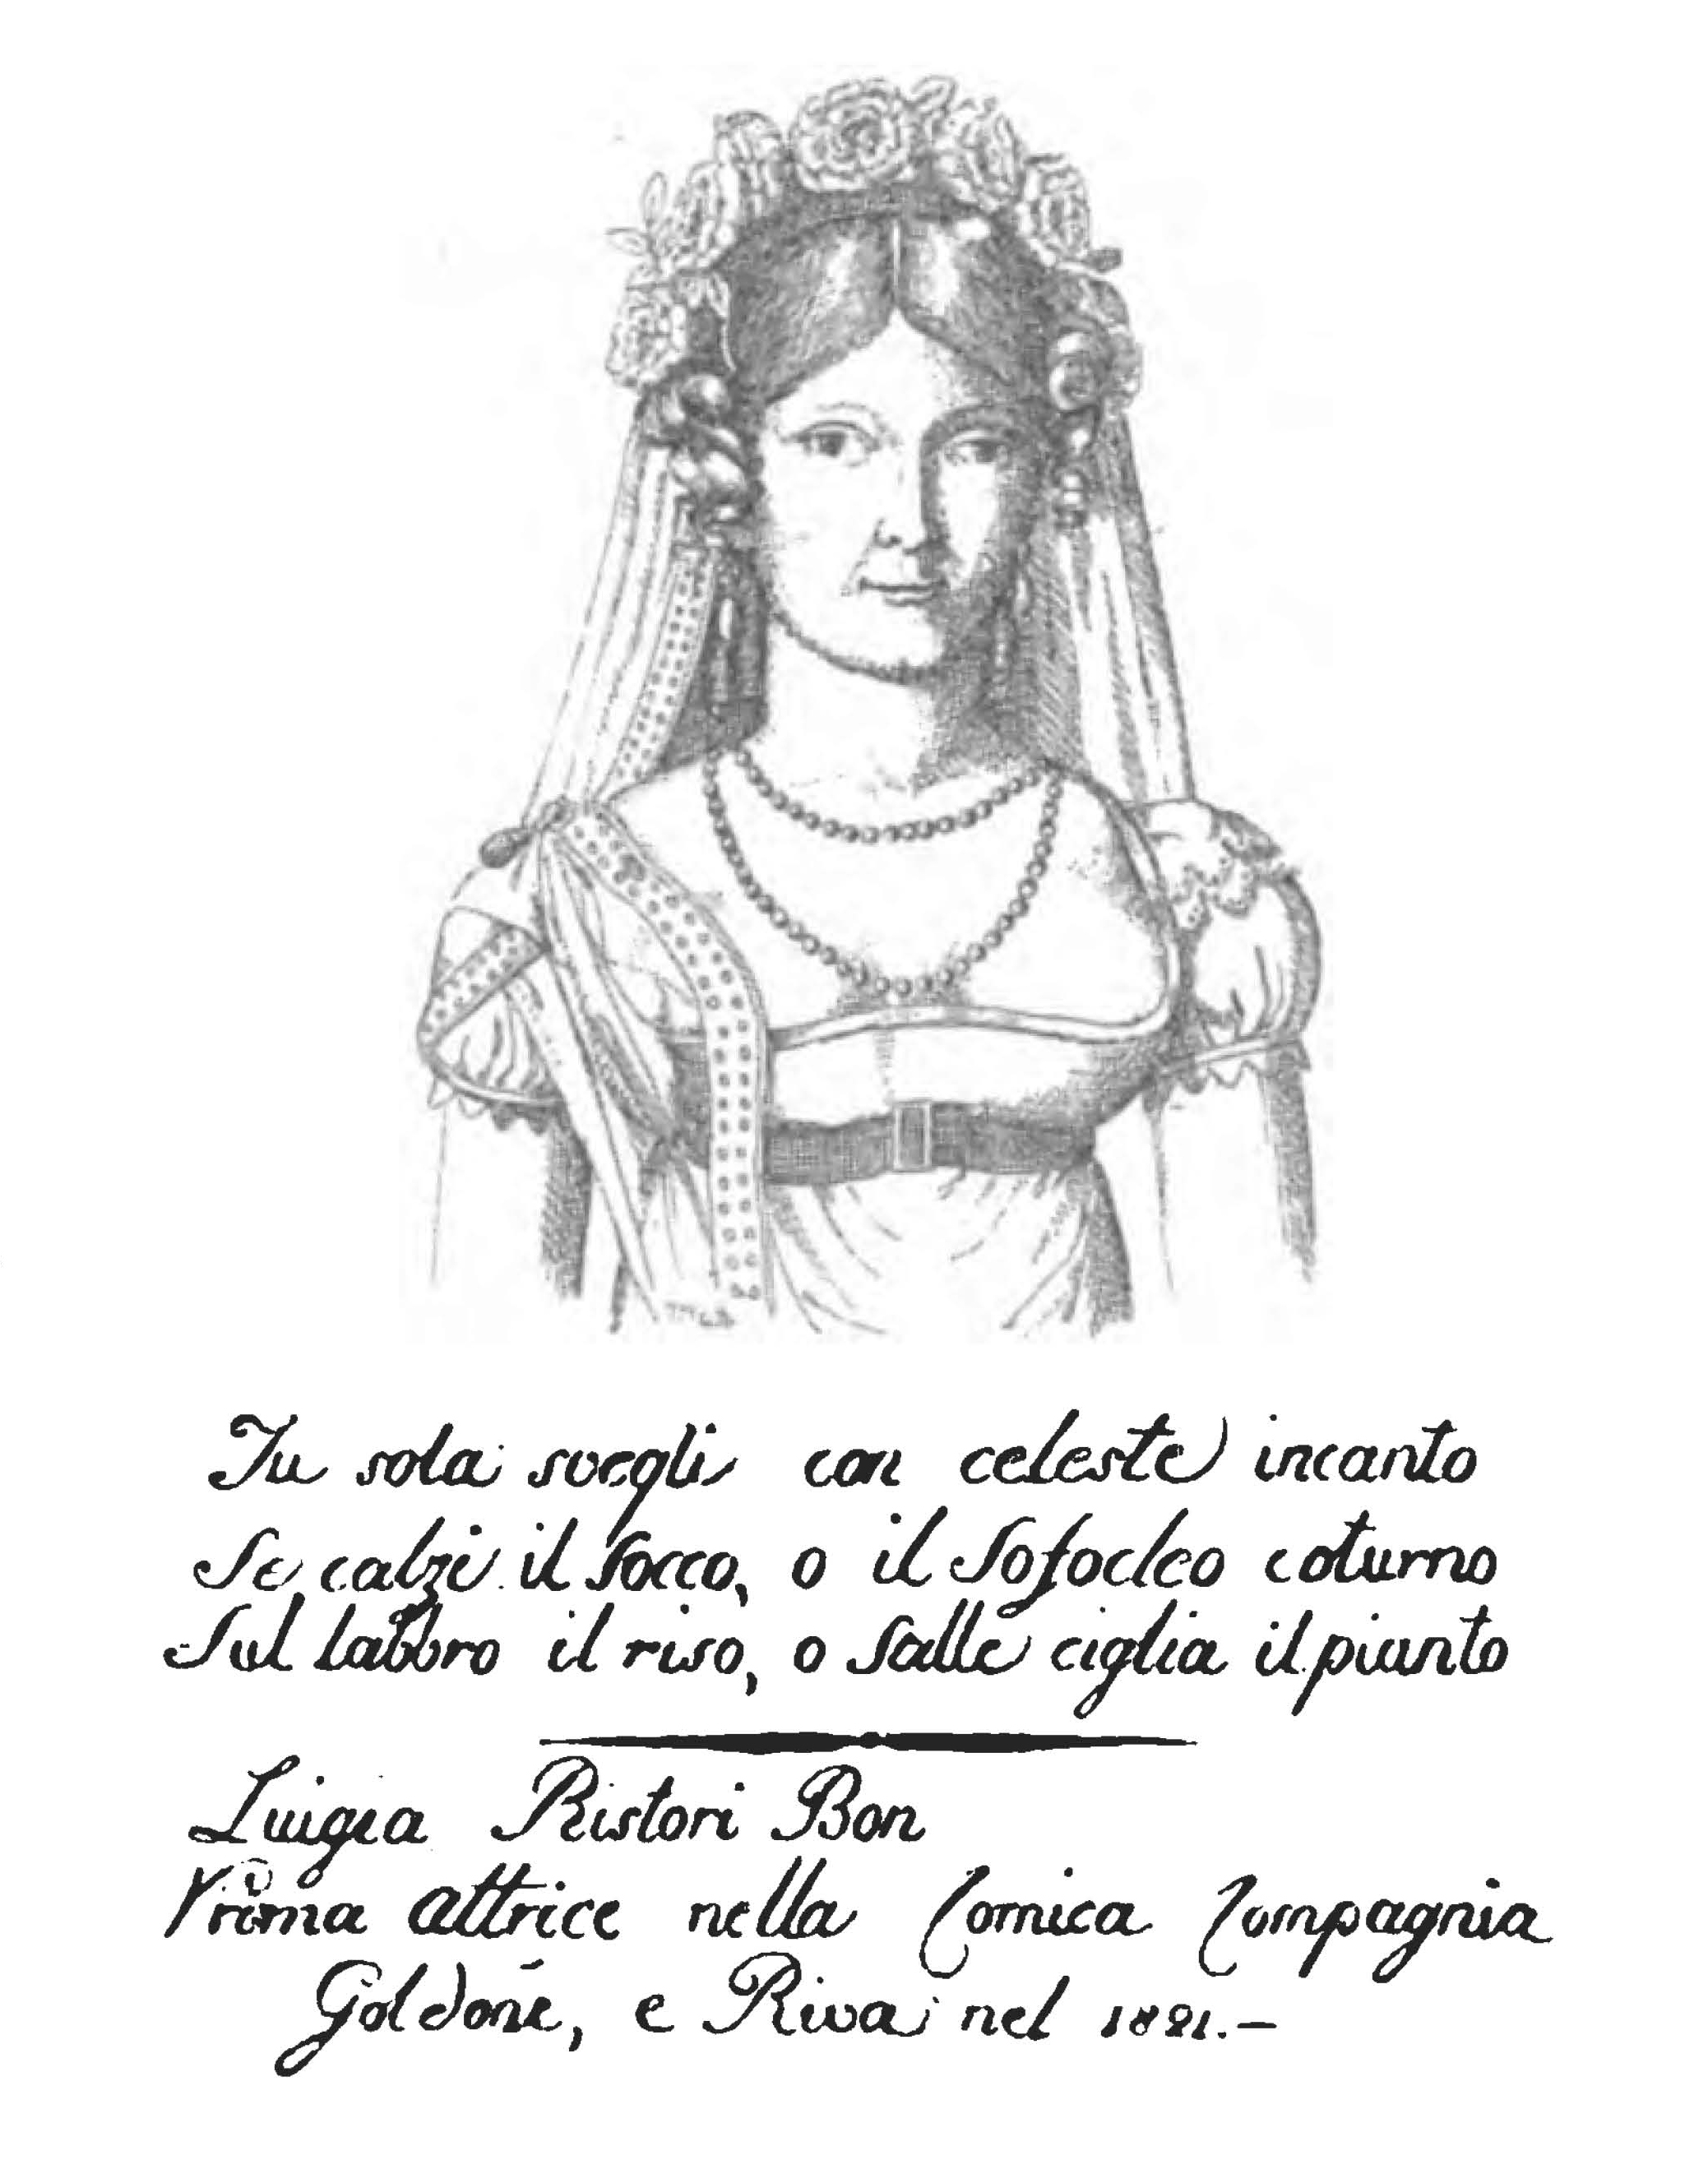 Tu sola svegli con celeste incanto
Se calzi il socco, o il Sofocleo coturno
Sul labbro il riso, o sulle ciglia il pianto
Luigia Ristori Bon
Prima attrice nella Comica Compagnia
Goldoni, e Riva nel 1821.—